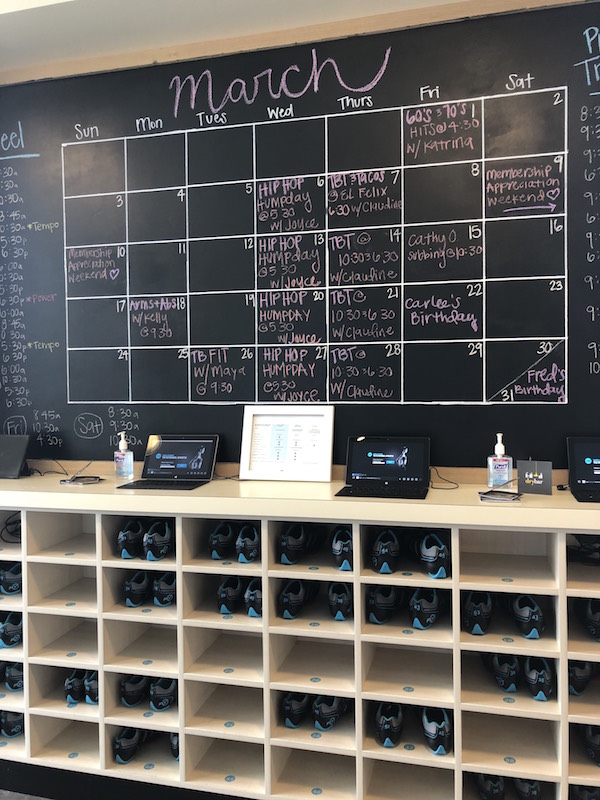 March
Sun Mon Tues Wed Thurs Fri Sat
1
60's & 70's
HITS @ 4:30
w/ Katrina
2
3
4
5
6
HIP HOP
HUMPDAY
@ 5:30
w/ Joyce
7
TBT & Tacos
@ EL Felix
6:30 w/ Claudine
8
9
Membership
Appreciation
Weekend
10
Membership
Appreciation
Weekend
11
12
13
HIP HOP
Humpday
@ 5:30
w/ Joyce
14
TBT @
10:30 & 6:30
w/ Claudine
15
Cathy O
subbing @ 10:30
16
17
18
Arms + Abs
w/ Kelly
@ 9:30
19
20
HIP HOP
HUMPDAY
@ 5:30
w/ Joyce
21
TBT @
10:30 & 6:30
w/ Claudine
22
Carlee's
Birthday
23
24
25
26
TB FIT
w/ Maya
@ 9:30
27
HIP HOP
HUMPDAY
@ 5:30
w/ JOYCE
28
TBT @
10:30 & 6:30
w/ Claudine
29
30
31
Fred's
Birthday
*Tempo
*Power
*Tempo
Fri
8:45a
10:30a
4:30p
Sat
8:30a
9:30a
10:30a
drybar